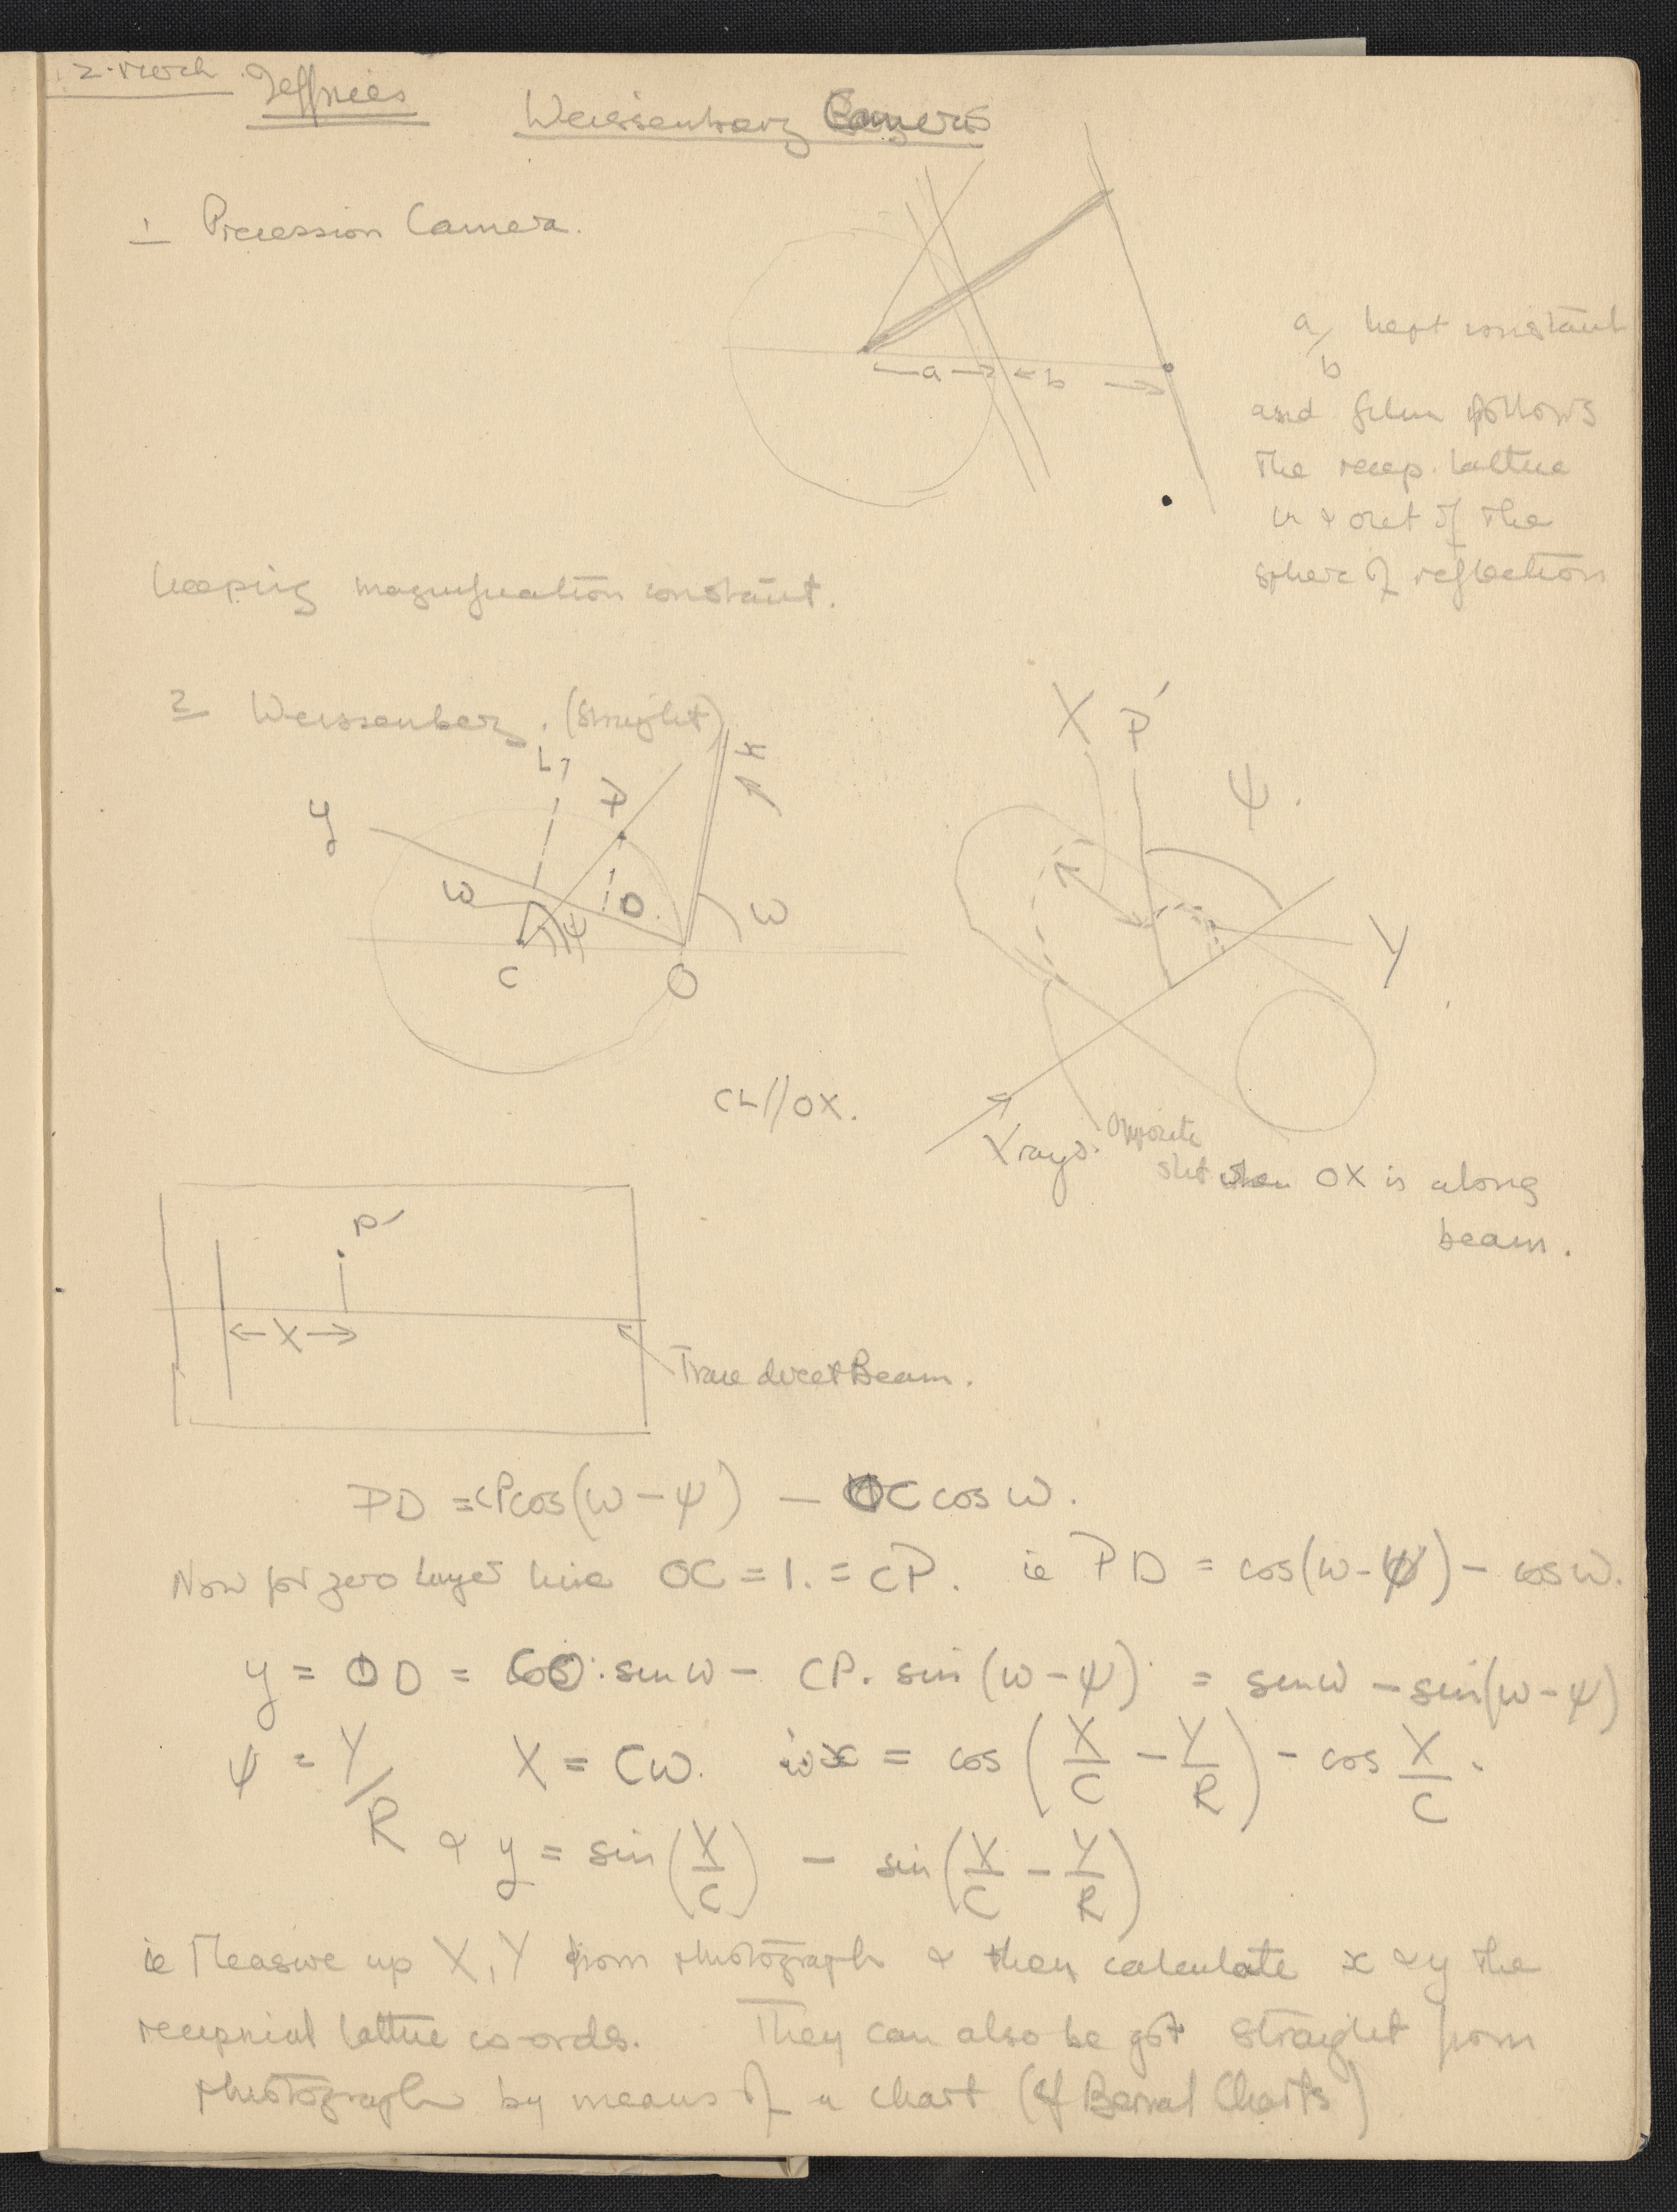 2. March Jeffries
Weissenberg Camera
1 Precession Camera.
← a → ← b →
a/b kept constant
and film follows
the recip. lattice
in & out of the
sphere of reflection
keeping magnification constant.
2 Weissenberg. (Straight)
L
P
x
y
ω
D
ψ
ω
C
O
X P′
ψ.
Y
CL//OX.
X rays.
Opposite
slit when OX is along
beam.
P′
← X →
Trace direct Beam.
PD = CP cos(ω − ψ) − OC cos ω.
Now for zero layer line OC = 1. = CP. ie PD = cos(ω − ψ) − cos ω.
y = OD = CO. sin ω − CP. sin (ω − ψ) = sin ω − sin(ω − ψ)
ψ = Y/R X = Cω. x = cos (X/C − Y/R) − cos X/C.
& y = sin (X/C) − sin (X/C − Y/R)
ie Measure up X, Y from photograph & then calculate x & y the
reciprical lattice co-ords. They can also be got straight from
photograph by means of a chart (cf Bernal Charts)